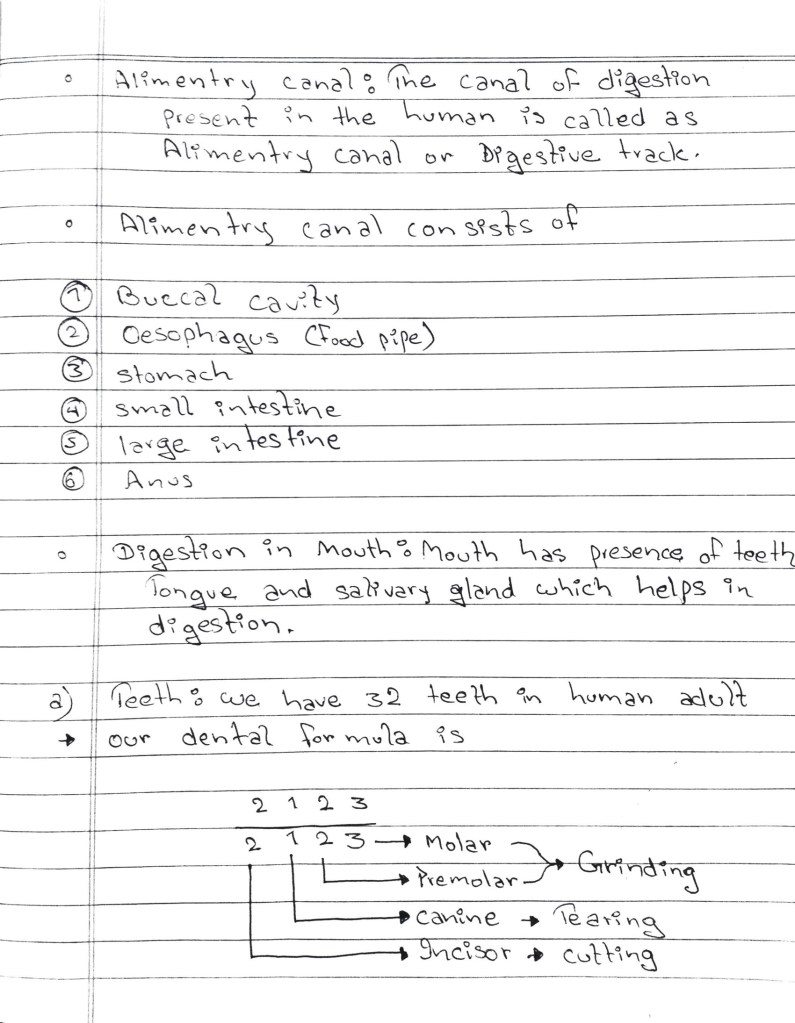 Alimentry canal: The canal of digestion
present in the human is called as
Alimentry canal or Digestive track.
Alimentry canal consists of
① Buccal cavity
② Oesophagus (Food pipe)
③ stomach
④ small intestine
⑤ large intestine
⑥ Anus
Digestion in Mouth: Mouth has presence of teeth
Tongue and salivary gland which helps in
digestion.
a) Teeth: we have 32 teeth in human adult
→ our dental formula is
2 1 2 3
2 1 2 3 → Molar
→ Premolar → Grinding
→ canine → Tearing
→ Incisor → cutting